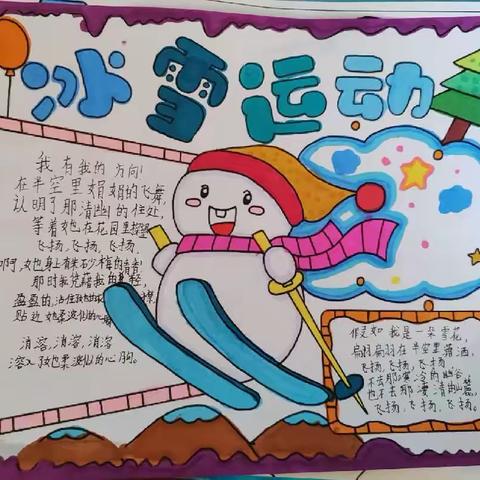 冰雪运动
我有我的方向!
在半空里娟娟的飞舞,
认明了那清幽的住处,
等着她在花园里探望
飞扬、飞扬、飞扬,
啊,她身上有朱砂梅的清香!
那时我凭藉我的身轻,
盈盈的,沾住她的衣襟
贴近她柔波似的心胸
消溶,消溶,消溶
溶入了她柔波似的心胸。
假如我是一朵雪花,
翩翩的在半空里潇洒,
飞扬,飞扬,飞扬
不去那冷寞的幽谷
也不去那凄清的山麓
飞扬,飞扬,飞扬。